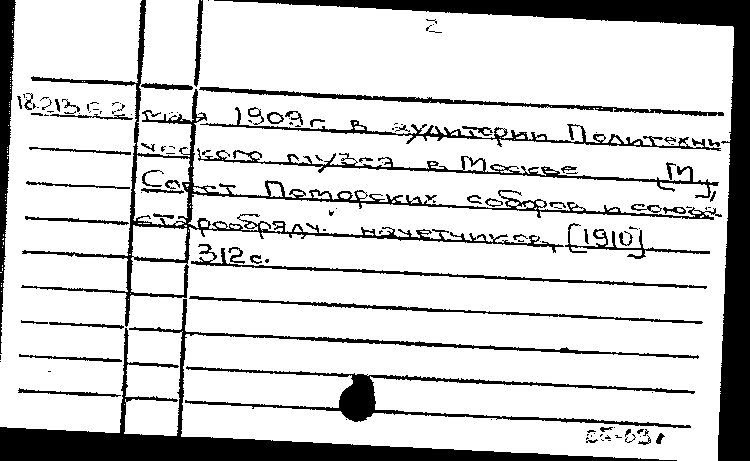 2
18.213.6.2 мая 1909 г. в аудитории Политехни-
ческого музея в Москве [М.],
Совет Поморских соборов и союза
старообрядч. начетчиков, [1910]
312 с.